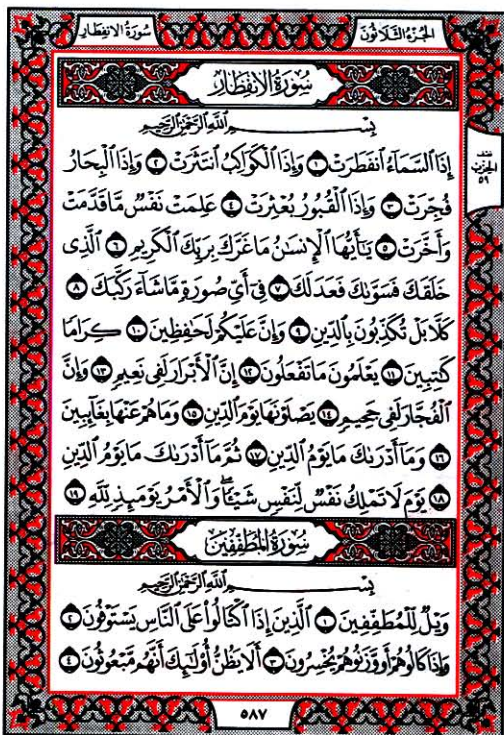 الجزء الثلاثون
سورة الانفطار
سُورَةُ الانفِطَارِ
بِسْمِ اللَّهِ الرَّحْمَٰنِ الرَّحِيمِ
إِذَا السَّمَاءُ انفَطَرَتْ ١ وَإِذَا الْكَوَاكِبُ انتَثَرَتْ ٢ وَإِذَا الْبِحَارُ
فُجِّرَتْ ٣ وَإِذَا الْقُبُورُ بُعْثِرَتْ ٤ عَلِمَتْ نَفْسٌ مَّا قَدَّمَتْ
وَأَخَّرَتْ ٥ يَٰأَيُّهَا الْإِنسَٰنُ مَا غَرَّكَ بِرَبِّكَ الْكَرِيمِ ٦ الَّذِى
خَلَقَكَ فَسَوَّىٰكَ فَعَدَلَكَ ٧ فِىٓ أَىِّ صُورَةٍ مَّا شَآءَ رَكَّبَكَ ٨
كَلَّا بَلْ تُكَذِّبُونَ بِالدِّينِ ٩ وَإِنَّ عَلَيْكُمْ لَحَٰفِظِينَ ١٠ كِرَامًا
كَٰتِبِينَ ١١ يَعْلَمُونَ مَا تَفْعَلُونَ ١٢ إِنَّ الْأَبْرَارَ لَفِى نَعِيمٍ ١٣ وَإِنَّ
الْفُجَّارَ لَفِى جَحِيمٍ ١٤ يَصْلَوْنَهَا يَوْمَ الدِّينِ ١٥ وَمَا هُمْ عَنْهَا بِغَآئِبِينَ
١٦ وَمَآ أَدْرَىٰكَ مَا يَوْمُ الدِّينِ ١٧ ثُمَّ مَآ أَدْرَىٰكَ مَا يَوْمُ الدِّينِ
١٨ يَوْمَ لَا تَمْلِكُ نَفْسٌ لِّنَفْسٍ شَيْـًٔا ۖ وَالْأَمْرُ يَوْمَئِذٍ لِّلَّهِ ١٩
سُورَةُ المُطَفِّفِينَ
بِسْمِ اللَّهِ الرَّحْمَٰنِ الرَّحِيمِ
وَيْلٌ لِّلْمُطَفِّفِينَ ١ الَّذِينَ إِذَا اكْتَالُوا۟ عَلَى النَّاسِ يَسْتَوْفُونَ ٢
وَإِذَا كَالُوهُمْ أَو وَّزَنُوهُمْ يُخْسِرُونَ ٣ أَلَا يَظُنُّ أُو۟لَٰٓئِكَ أَنَّهُم مَّبْعُوثُونَ ٤
الحزب
٥٩
٥٨٧